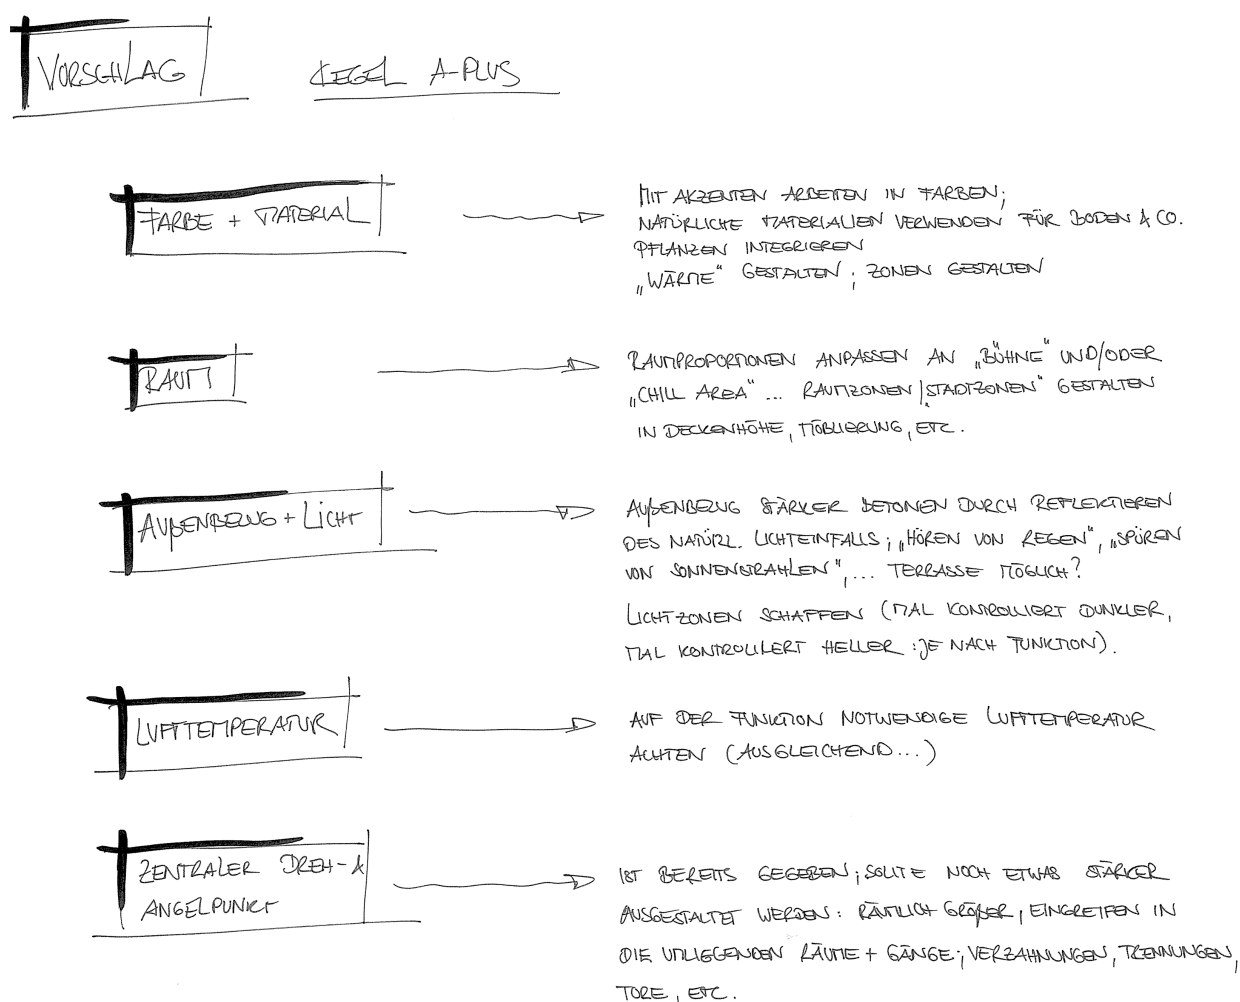 VORSCHLAG
KEGEL A-PLUS
FARBE + MATERIAL
MIT AKZENTEN ARBEITEN IN FARBEN;
NATÜRLICHE MATERIALIEN VERWENDEN FÜR BODEN & CO.
PFLANZEN INTEGRIEREN
„WÄRME“ GESTALTEN; ZONEN GESTALTEN
RAUM
RAUMPROPORTIONEN ANPASSEN AN „BÜHNE“ UND/ODER
„CHILL AREA“... RAUMZONEN/„STADTZONEN“ GESTALTEN
IN DECKENHÖHE, MÖBLIERUNG, ETC.
AUßENBEZUG + LICHT
AUßENBEZUG STÄRKER BETONEN DURCH REFLEKTIEREN
DES NATÜRL. LICHTEINFALLS; „HÖREN VON REGEN“, „SPÜREN
VON SONNENSTRAHLEN“,... TERRASSE MÖGLICH?
LICHTZONEN SCHAFFEN (MAL KONTROLLIERT DUNKLER,
MAL KONTROLLIERT HELLER: JE NACH FUNKTION).
LUFTTEMPERATUR
AUF DER FUNKTION NOTWENDIGE LUFTTEMPERATUR
ACHTEN (AUSGLEICHEND...)
ZENTRALER DREH- &
ANGELPUNKT
IST BEREITS GEGEBEN; SOLLTE NOCH ETWAS STÄRKER
AUSGESTALTET WERDEN: RÄUMLICH GRÖßER, EINGREIFEN IN
DIE UMLIEGENDEN RÄUME + GÄNGE; VERZAHNUNGEN, TRENNUNGEN,
TORE, ETC.